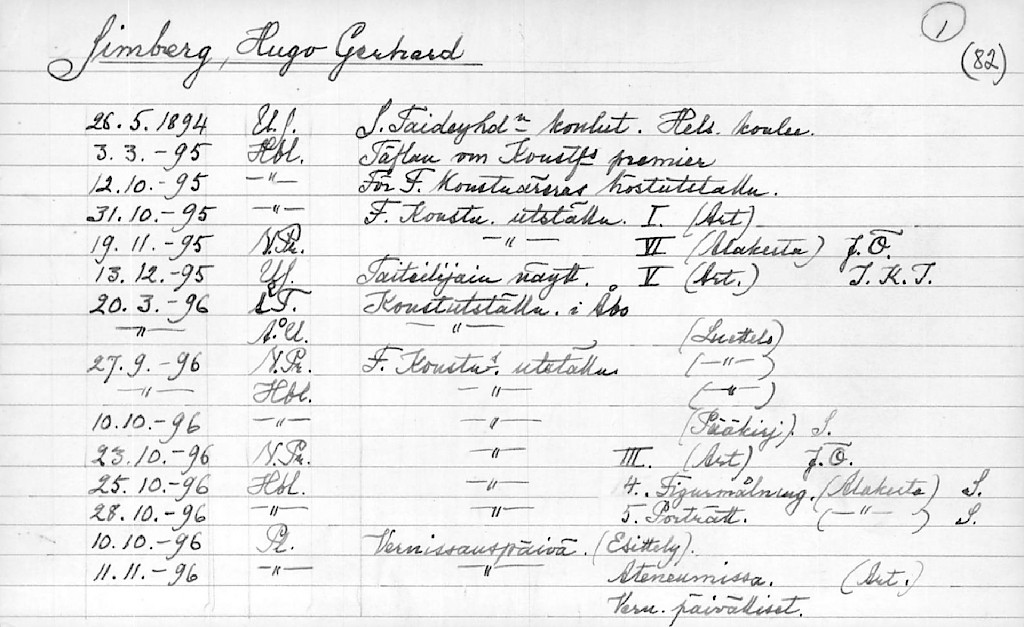 1
Simberg, Hugo Gerhard (82)
26.5.1894 U.S. S. Taideyhdn koulut. Hels. koulu.
3.3.-95 Hbl. Täflan om Konstfs premier
12.10.-95 -"- För F. Konstnärernas höstutställn.
31.10.-95 -"- F. Konstn. utställn. I. (Art)
19.11.-95 N.Pr. -"- VI (Alakerta) J.Ö.
13.12.-95 U.S. Taiteilijain näytt. V (Art.) J.K.I.
20.3.-96 ÅT. Konstutställn. i Åbo
-"- Å.U. -"- (Luettelo)
27.9.-96 N.Pr. F. Konstns. utställn. (-"-)
-"- Hbl. -"- (-"-)
10.10.-96 -"- -"- (Pääkirj). S.
23.10.-96 N.Pr. -"- III. (Art) J.Ö.
25.10.-96 Hbl. -"- 4. Figurmålning. (Alakerta) S.
28.10.-96 -"- -"- 5. Porträtt. (-"-) S.
10.10.-96 Pl. Vernissauspäivä. (Esittely).
11.11.-96 -"- -"- Ateneumissa. (Art.)
Vern. päivälliset.